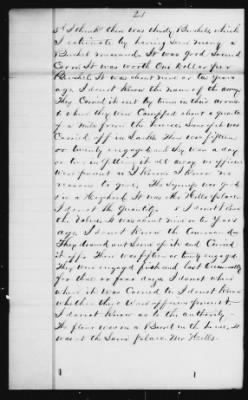 21
3d I think there was thirty Bushels which
I estimate by having seen many a
Bushel measured. It was good sound
Corn. It was worth One Dollar per
Bushel. It was about nine or ten years
ago, I do not know the name of the army.
They carried it out by turn in their arms
to where they was Camped about a quarter
of a mile from the house. Some of it was
Carried off in sacks. There was fifteen
or twenty engaged and they was a day
or two in getting it all away no officers
was present as I know. I know no
reasons to give. The Syrup was got
in a Hogshead. It was at the Halls place.
I do not the Quantity. nor I do not know
the Value. It was about nine or ten years
ago. I do not know the Command
They drawed out some of it and Carried
it off. There was fifteen or twenty engaged
They were engaged first and last Occasionally
for three or four days. I do not know
where it was Carried to. I do not know
whether there were officers present.
I do not know as to the authority
The flour was in a Barrel in the house. It
was at the same place. Mr Halls.